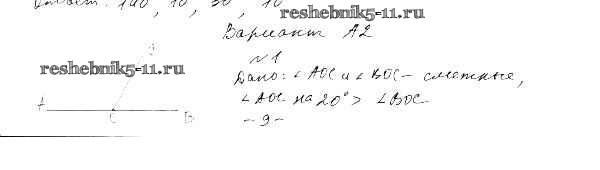 Ответ: 140°, 10°, 30°, 10
reshebnik5-11.ru
Вариант А2
№1
reshebnik5-11.ru
Дано: ∠AOC и ∠BOC - смежные,
∠AOC на 20° > ∠BOC
A C B
- 9 -